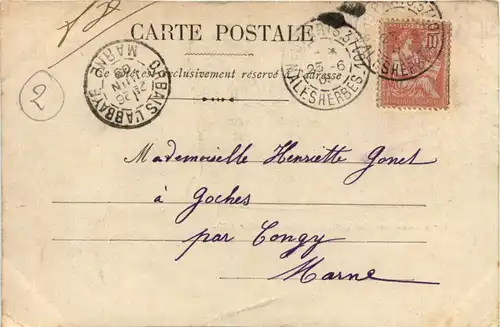 CARTE POSTALE
Ce côté est exclusivement réservé à l'adresse
ORBAIS L'ABBAYE
MARNE
25 -6
MALESHERBES
MALESHERBES
2
Mademoiselle Henriette Gonet
à Goches
par Congy
Marne